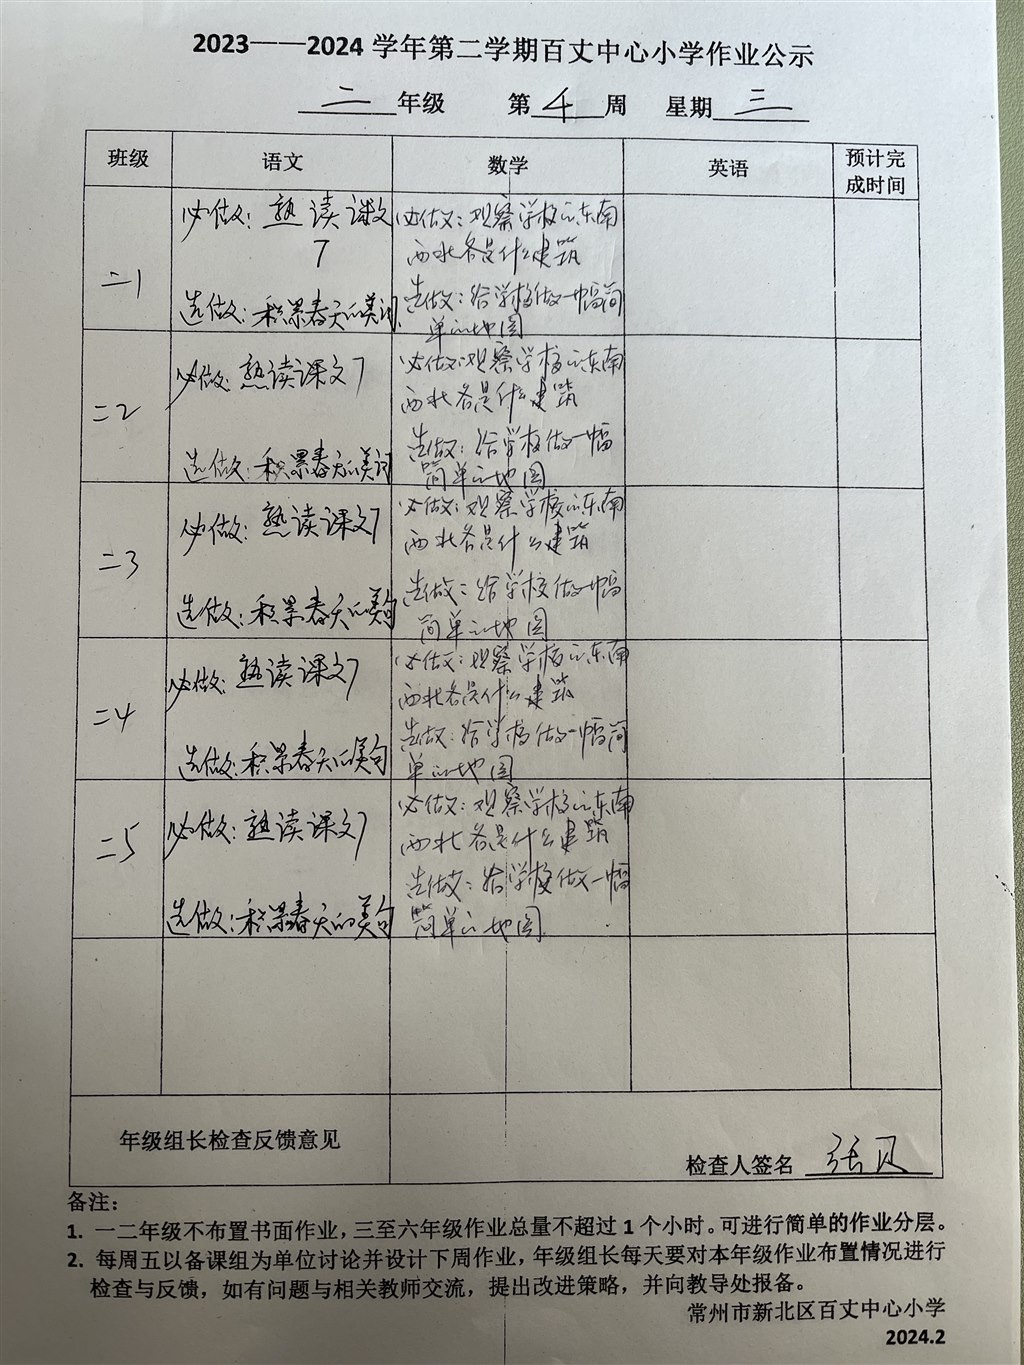 2023——2024 学年第二学期百丈中心小学作业公示
二 年级 第 4 周 星期 三
班级 语文 数学 英语 预计完
成时间
二1
必做：熟读课文
7
选做：积累春天的美词.
必做：观察学校的东南
西北各是什么建筑
选做：给学校做一幅简
单的地图
二2
必做：熟读课文7
选做：积累春天的美词
必做：观察学校的东南
西北各是什么建筑
选做：给学校做一幅
简单的地图
二3
必做：熟读课文7
选做：积累春天的美句
必做：观察学校的东南
西北各是什么建筑
选做：给学校做一幅
简单的地图
二4
必做：熟读课文7
选做：积累春天的美句
必做：观察学校的东南
西北各是什么建筑
选做：给学校做一幅简
单的地图
二5
必做：熟读课文7
选做：积累春天的美句
必做：观察学校的东南
西北各是什么建筑
选做：给学校做一幅
简单的地图.
年级组长检查反馈意见
检查人签名 张贝
备注：
1. 一二年级不布置书面作业，三至六年级作业总量不超过 1 个小时。可进行简单的作业分层。
2. 每周五以备课组为单位讨论并设计下周作业，年级组长每天要对本年级作业布置情况进行
检查与反馈，如有问题与相关教师交流，提出改进策略，并向教导处报备。
常州市新北区百丈中心小学
2024.2